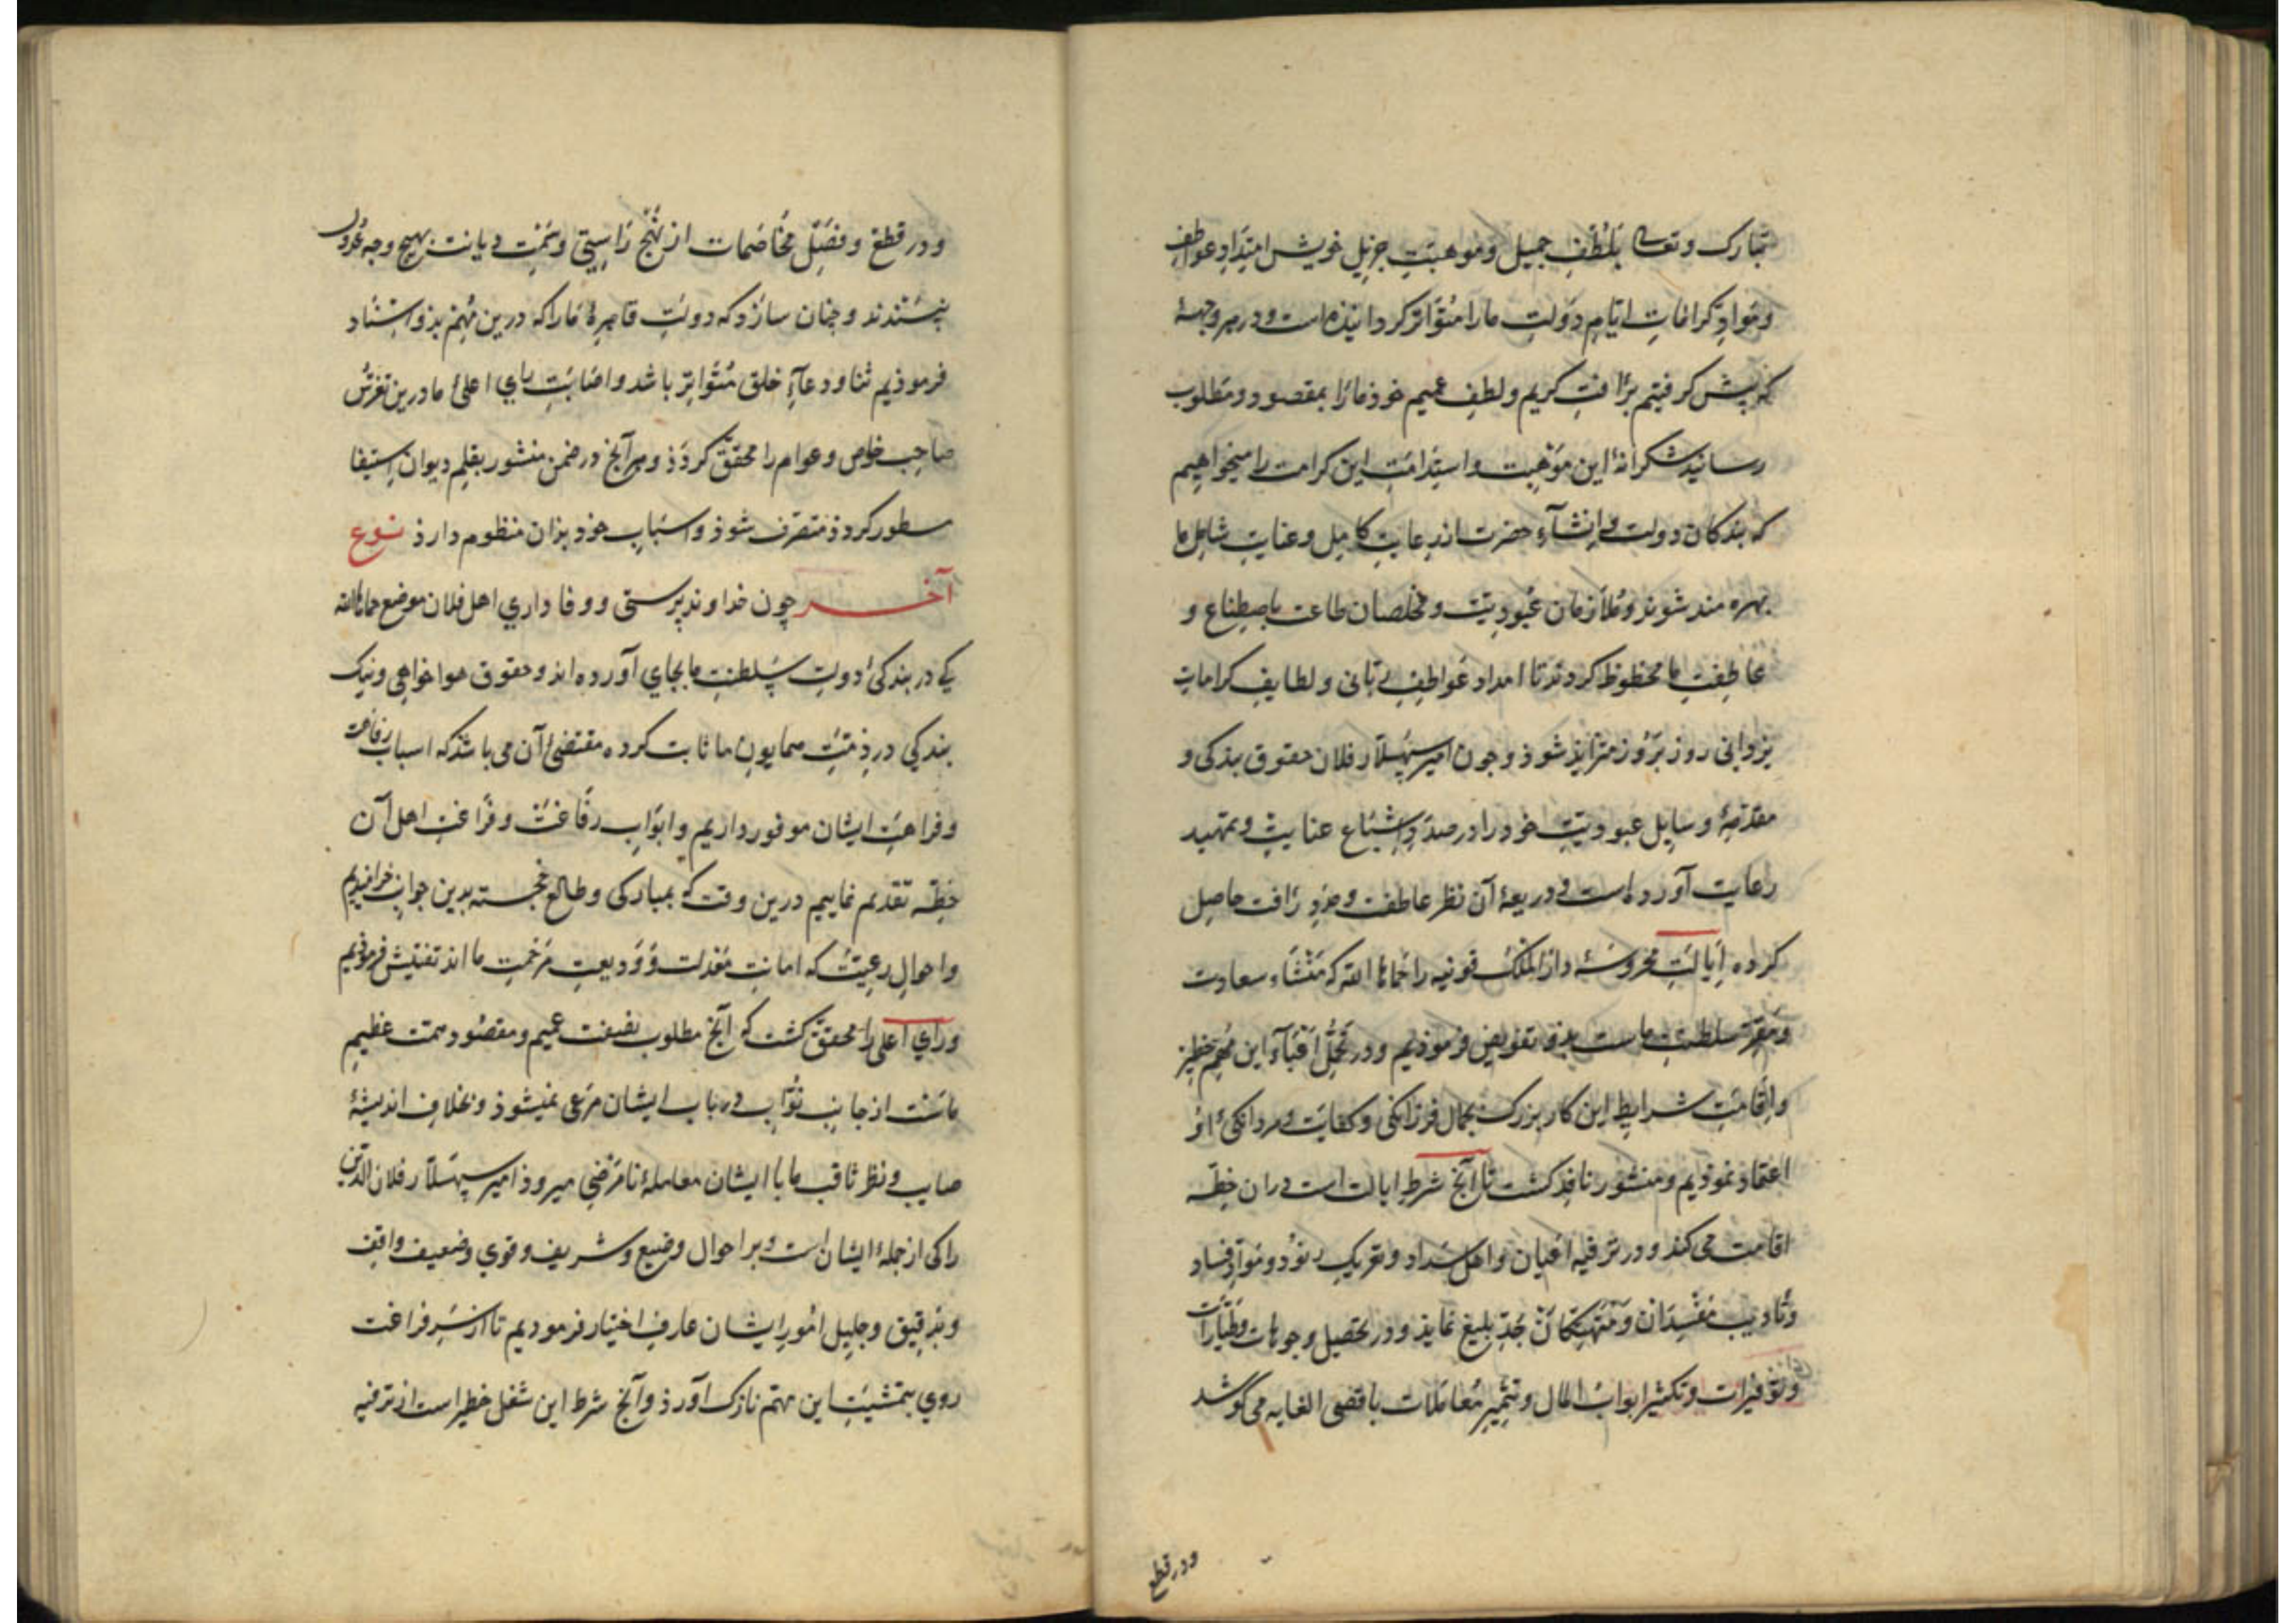 تبارک وتعالی بلُطْفِ جمیل وموهبتِ جزیل خویش امتِدادِ عواطفِ
وموادِ کراماتِ ایّامِ دَولتِ مارا متواتر کردانیذه است ودر هر وجهۀ
که پیش کرفتیم برأفتِ کریم ولطفِ عمیم خوذ مارا بمقصود ومطلوب
رسانید شکرانۀ این مَوْهبت واستِدامَتِ این کرامت را میخواهیم
که بندکان دولت وانشآءِ حضرت از رعایتِ کامِل وعنایتِ شامِل ما
بهره مند شوند ومُلازمان عُبودیّت ومخلصان طاعت باصطِناع و
عاطِفتِ ما محظوظ کردند تا امداد عَواطِفِ ربّانی ولطایفِ کراماتِ
یزدانی روز بَروز متزایذ شوذ وچون امیر سپهسلار فلان حقوق بندکی و
مقدّمۀ وسایِل عبودیّت خود را در صددِ اشباع عنایت وتمهید
رعایت آورده است وذریعۀ آن نظر عاطفت ومزیدِ رافت حاصِل
کرده اِیالتِ محروسۀ دارالملک قونیه را حماها الله که مَنْشَاءِ سعادت
ومَقرّ سلطنتِ ماست بدو تفویض فرموذیم ودر تحمّل اَعْبَآءِ این مُهِمّ خطیر
واِقامتِ شرایطِ این کار بزرک بجمالِ فرزانکی وکفایت ومردانکیِ او
اعتماد نموذیم ومنشور نافِذ کشت تا آنچ شرطِ ایالت است دران خِطّه
اقامت می کند ودر ترفیه اعیان واهل سَداد وتعریکِ رنود وموادِّ فساد
وتادیب مفسِدان ومُتَهتِّکان بجدِّ بلیغ نماید ودر تحصیل وجوهات وطیّارات
وتوفیرات وتکثیر ابوابْ المال وتثمیر معاملات باقصی الغایه می کوشد
ودر قطع
ودر قطع وفصْل مخاصَمات از نَهْج راستی وسَمْتِ دیانت بهیچ وجه عُدول
نپسندند وچنان سازد که دولتِ قاهِرۀ مارا که درین مُهِم بذو استناد
فرموذیم ثنا ودعآءِ خلق مُتَواتِر باشد واصابتِ رایِ اعلیِ ما درین تفرّسْ
صاحِب خاص وعوام را محقق کرذذ وهر آنچ در ضمن منشور بقلمِ دیوانِ استیفا
مسطور کردد متصرّف شوذ واسبابِ خود بزان منظوم دارذ نوع
آخر چون خداوند پرستی ووفا داریِ اهل فلان موضع حماها الله
کی در بندکیِ دولتِ سلطنتِ ما بجای آورده اند وحقوق هواخواهی ونیک
بندکی در ذمّتِ همایونِ ما ثابت کرده مقتضیِ آن می باشذ که اسباب رفاهت
وفراهتِ ایشان موفور داریم وابوابِ رفاغت وفراغتِ اهل آن
خِطّه تقدیم نماییم درین وقت که بمبارکی وطالع خجسته بدین جوانب خرامیدیم
واحوالِ رعیّت که امانتِ مَعْدلت ووَدیعتِ مرْحمتِ ما اند تفتیش فرموذیم
ورأیِ اعلی را محقق کشت که آنچ مطلوب نصفت عمیم ومقصُود همت عظیمِ
ماست از جانبِ نُوّاب در باب ایشان مرعی نمیشوذ وبخلافِ اندیشۀ
صایب ونظر ثاقبِ ما با ایشان معاملۀ نامَرْضِی میروذ امیر سپهسلار فلان الدین
را کی از جملۀ ایشان است وبر احوال وضیع وشریف وقوی وضعیف واقِف
وبدقیق وجلیلِ امُورِ ایشان عارِف اختیار فرمودیم تا از سَرِ فراغت
روی بتمشیتِ این مهمّ نازک آورذ وآنچ شرط این شغل خطیر است از ترفیهِ